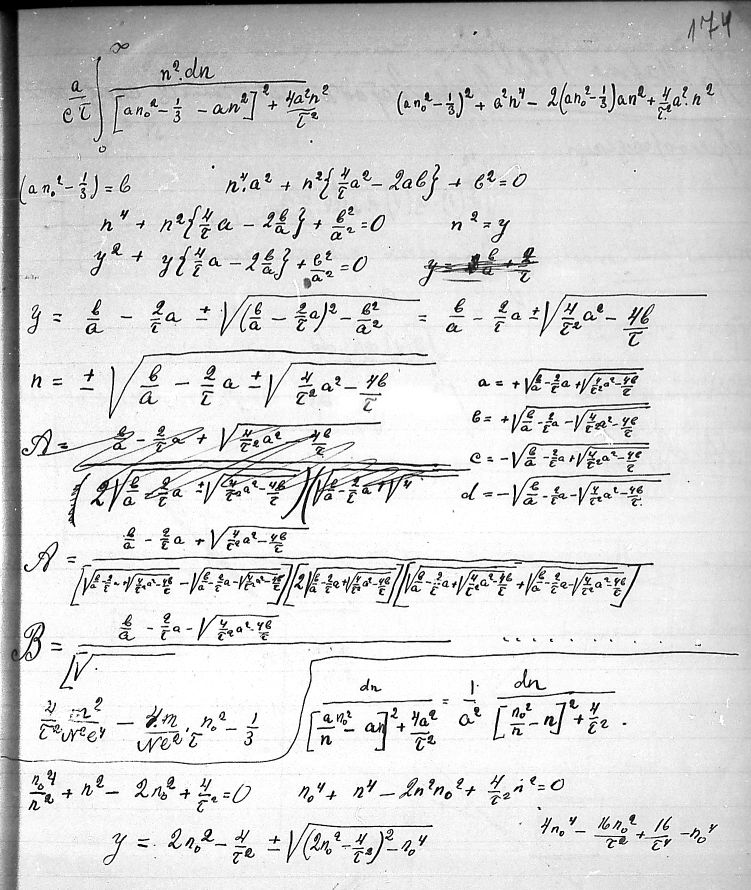 174
a/(cτ) ∫₀^∞ n²·dn / ([an₀² - 1/3 - an²]² + 4a²n²/τ²)    (an₀² - 1/3)² + a²n⁴ - 2(an₀² - 1/3)an² + 4/τ² a²·n²
(an₀² - 1/3) = b    n⁴·a² + n²{4/τ a² - 2ab} + b² = 0
n⁴ + n²{4/τ a - 2 b/a} + b²/a² = 0    n² = y
y² + y{4/τ a - 2 b/a} + b²/a² = 0
y = b/a - 2/τ a ± √((b/a - 2/τ a)² - b²/a²) = b/a - 2/τ a ± √(4/τ² a² - 4b/τ)
n = ± √(b/a - 2/τ a ± √(4/τ² a² - 4b/τ))
a = +√(b/a - 2/τ a + √(4/τ² a² - 4b/τ))
b = +√(b/a - 2/τ a - √(4/τ² a² - 4b/τ))
c = -√(b/a - 2/τ a + √(4/τ² a² - 4b/τ))
d = -√(b/a - 2/τ a - √(4/τ² a² - 4b/τ))
A = b/a - 2/τ a + √(4/τ² a² - 4b/τ)
(2√(b/a - 2/τ a ± √(4/τ² a² - 4b/τ))(√(b/a - 2/τ a + √4
A = (b/a - 2/τ a + √(4/τ² a² - 4b/τ)) / ([√(b/a - 2/τ a + √(4/τ² a² - 4b/τ)) - √(b/a - 2/τ a - √(4/τ² a² - 4b/τ))][2√(b/a - 2/τ a + √(4/τ² a² - 4b/τ))][√(b/a - 2/τ a + √(4/τ² a² - 4b/τ)) + √(b/a - 2/τ a - √(4/τ² a² - 4b/τ))])
B = (b/a - 2/τ a - √(4/τ² a² - 4b/τ)) / [√ . . . . . . . .
4/τ² m²/N²e⁴ - 4m/Ne² · τ n₀² - 1/3
dn / ([a n₀²/n - an]² + 4a²/τ²) = 1/a² dn / ([n₀²/n - n]² + 4/τ²) .
n₀⁴/n² + n² - 2n₀² + 4/τ² = 0    n₀⁴ + n⁴ - 2n²n₀² + 4/τ² n² = 0
y = 2n₀² - 4/τ² ± √((2n₀² - 4/τ²)² - n₀⁴)    4n₀⁴ - 16n₀²/τ² + 16/τ⁴ - n₀⁴